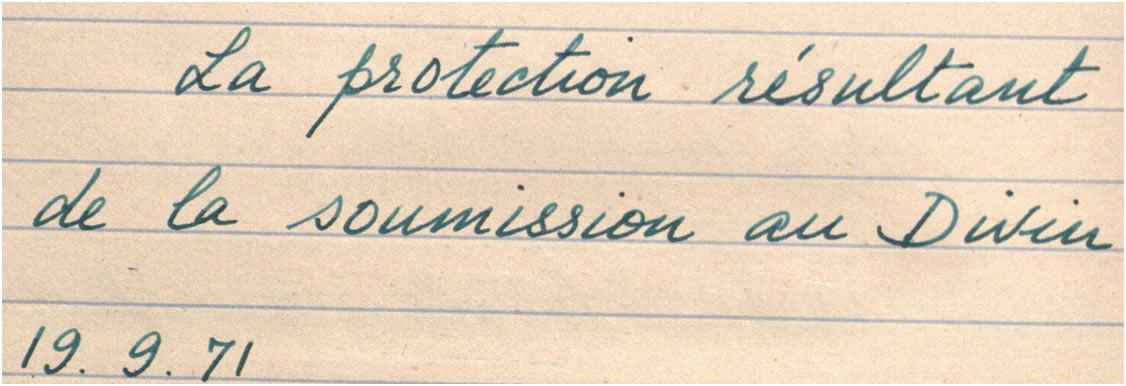 La protection résultant
de la soumission au Divin
19. 9. 71